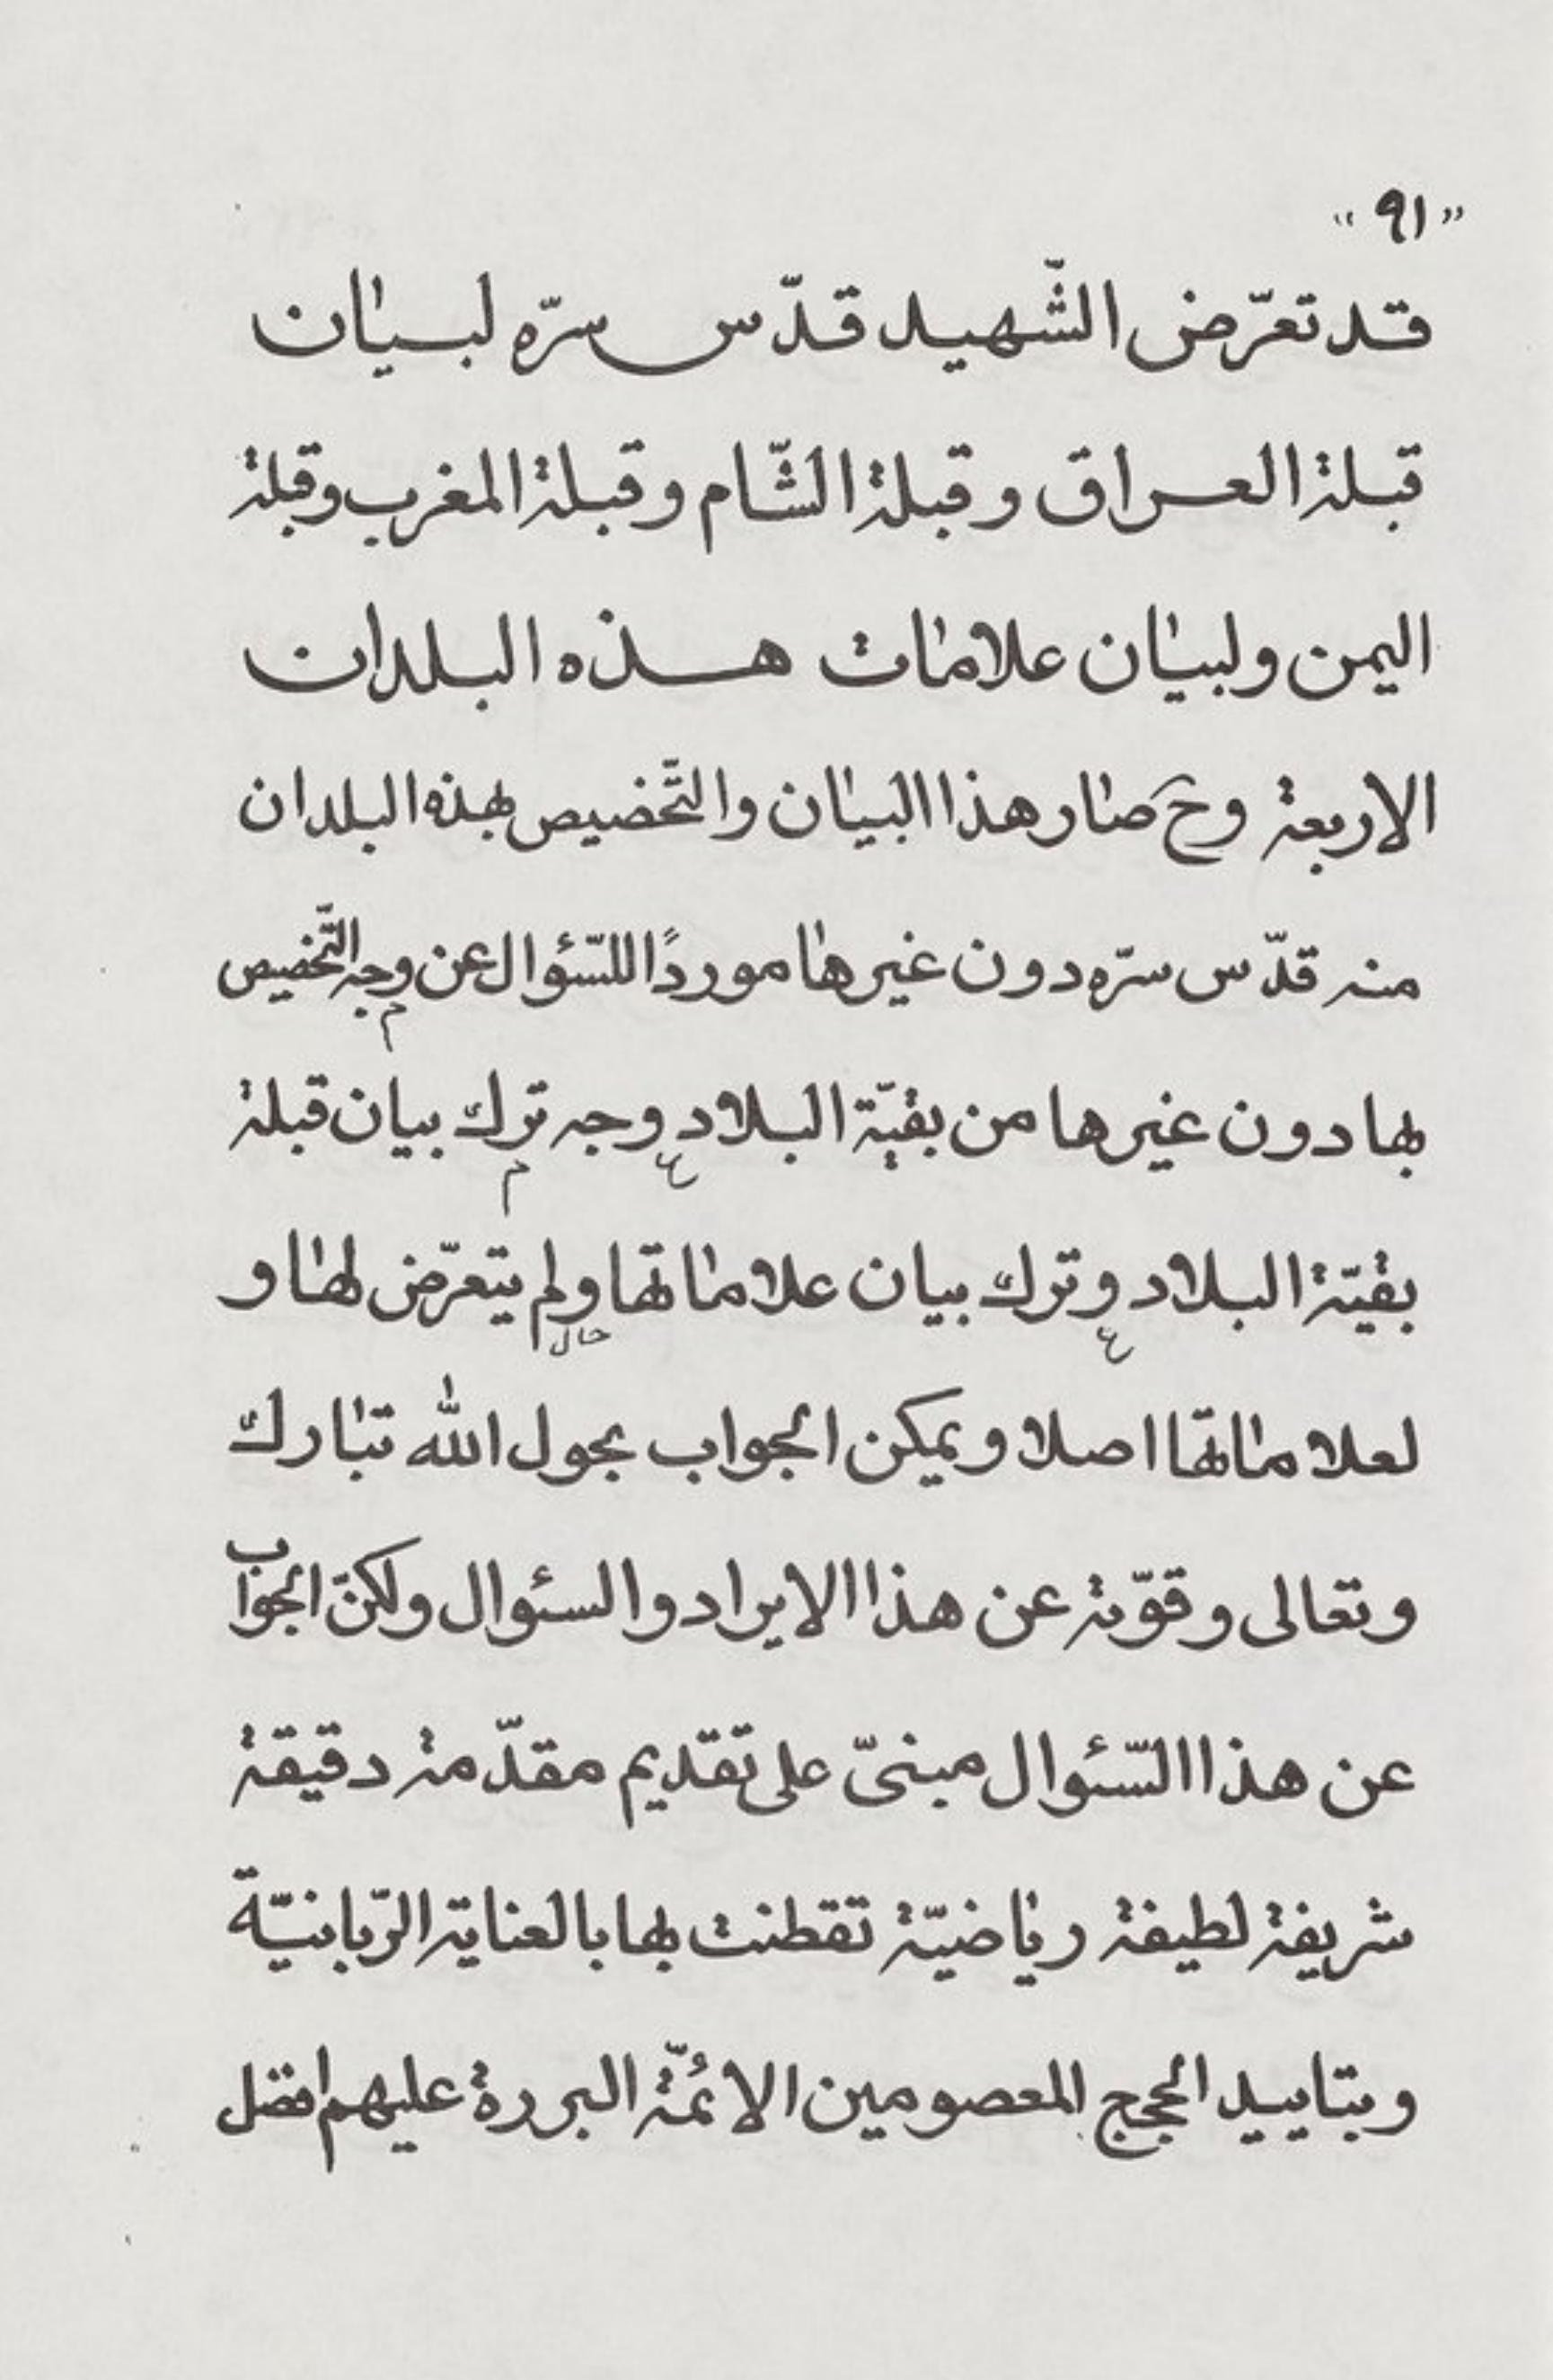 «٩١»
قد تعرّض الشّهيد قدّس سرّه لبيان
قبلة العراق وقبلة الشّام وقبلة المغرب وقبلة
اليمن ولبيان علامات هذه البلدان
الاربعة وحَ صار هذا البيان والتّخصيص بهذه البلدان
منه قدّس سرّه دون غيرها موردًا للسّئوال عن وجه التّخصيص
م
بها دون غيرها من بقيّة البلاد وجه ترك بيان قبلة
ع م
بقيّة البلاد وترك بيان علاماتها ولم يتعرّض لها و
ع حال
لعلاماتها اصلا ويمكن الجواب بحول الله تبارك
وتعالى وقوّته عن هذا الايراد والسئوال ولكنّ الجواب
عن هذا السّئوال مبنىّ على تقديم مقدّمة دقيقة
شريفة لطيفة رياضيّة تقطنت بها بالعناية الرّبانيّة
وبتاييد الحجج المعصومين الائمّة البررة عليهم افضل